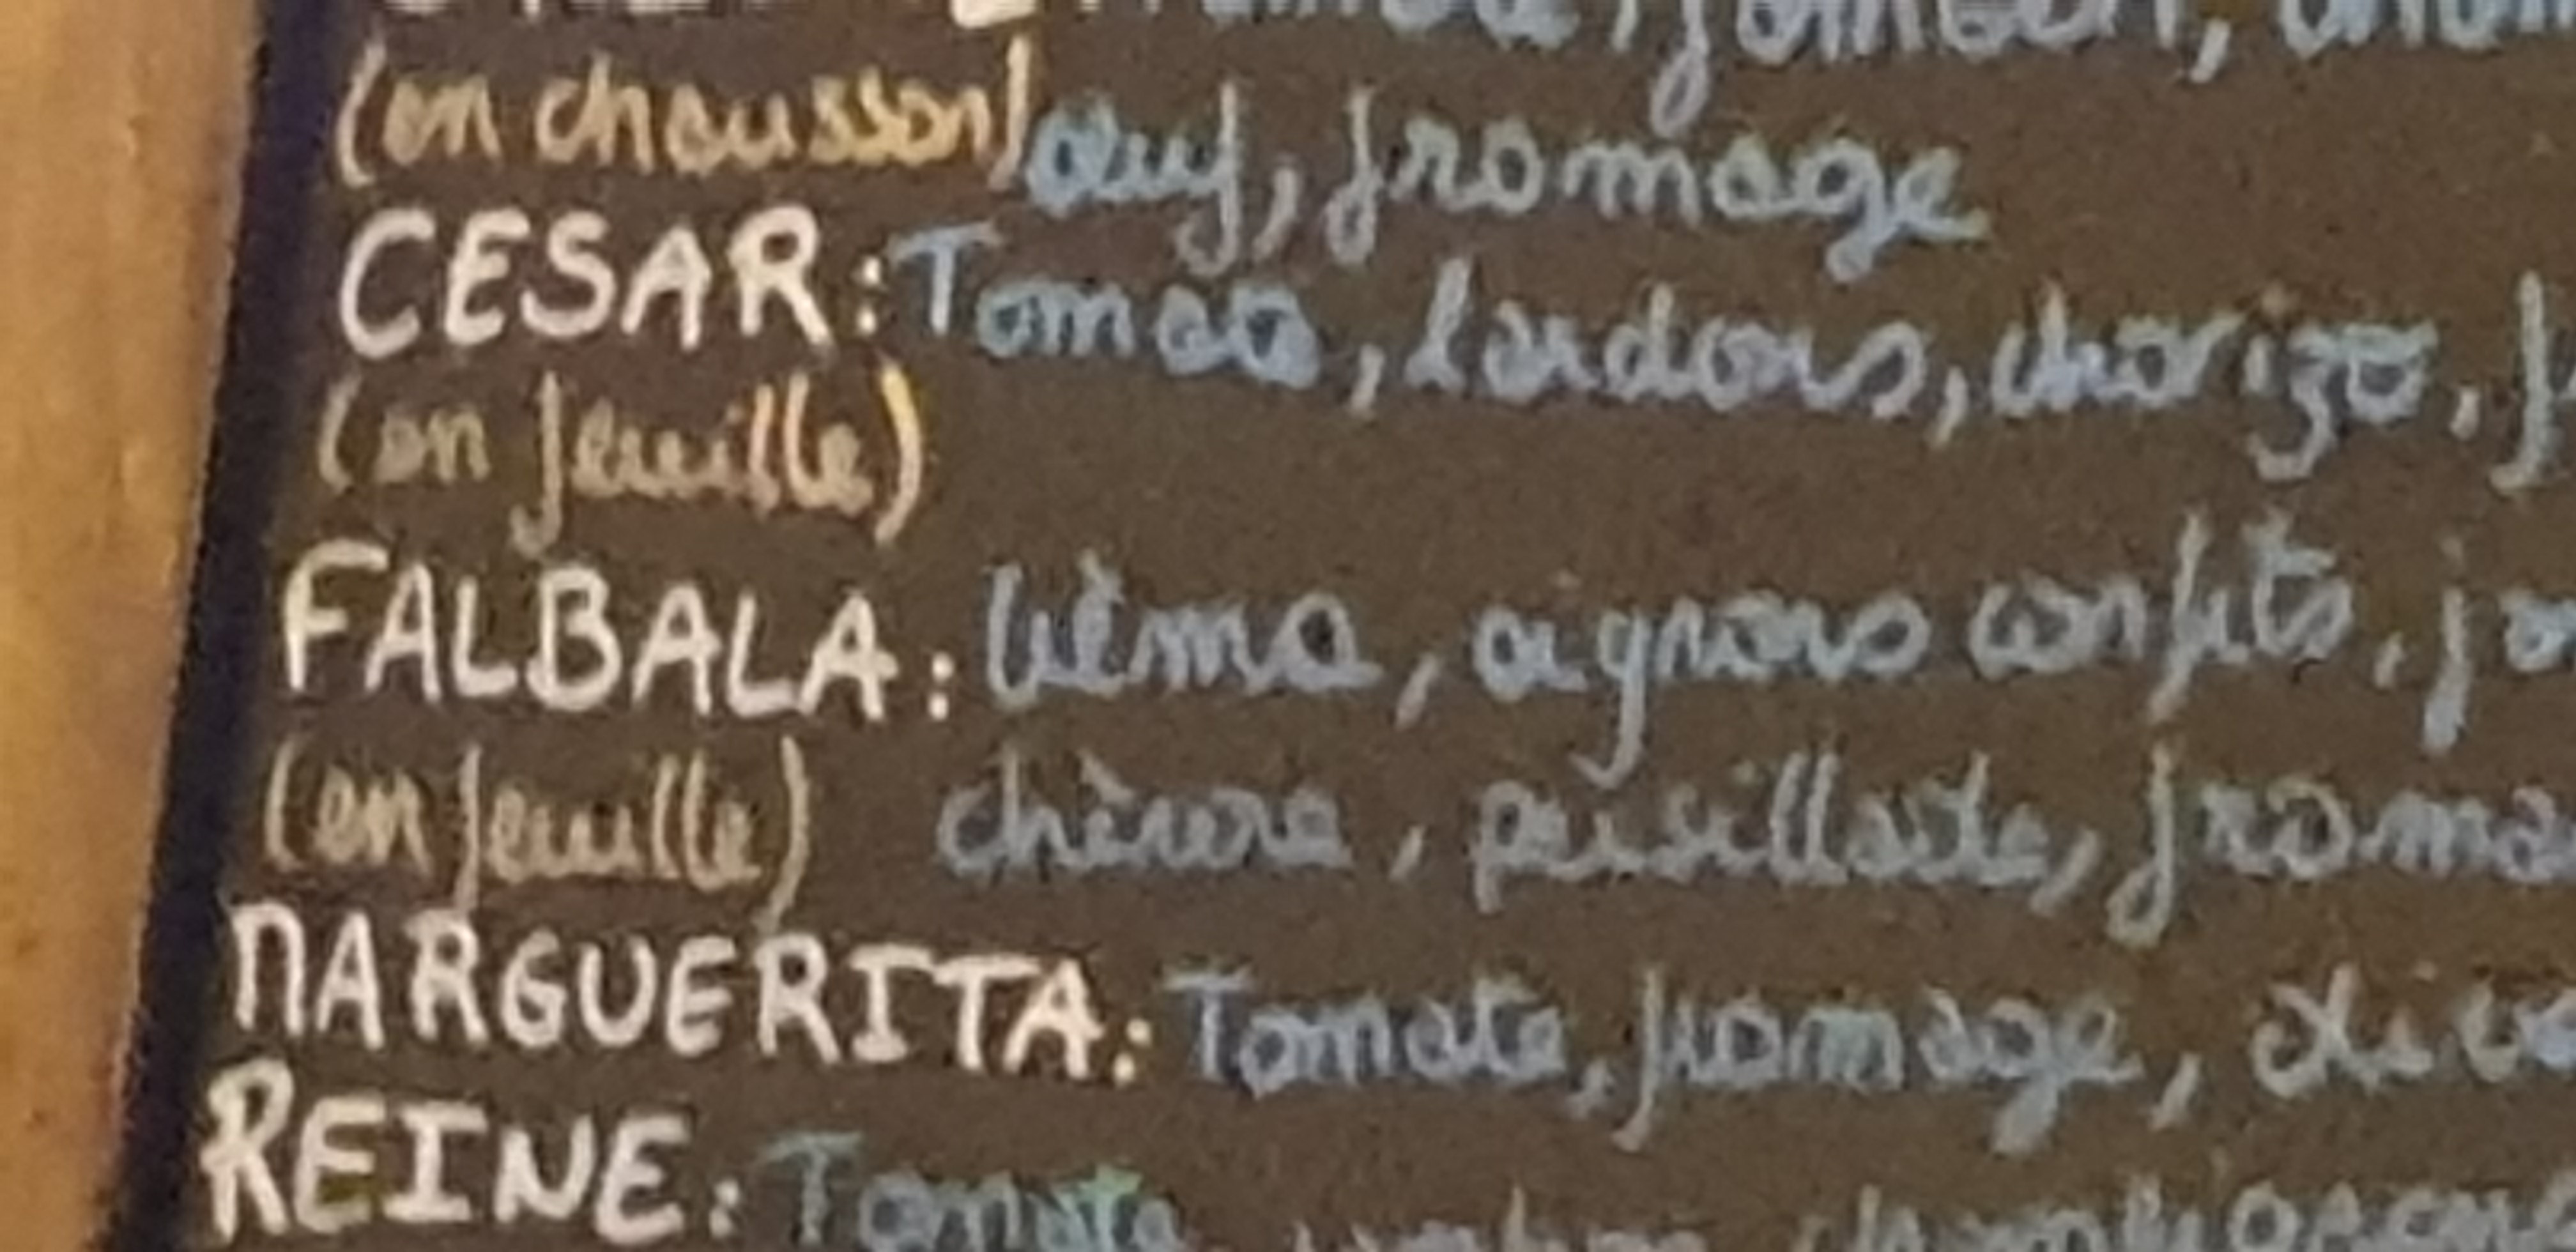 jambon,
(en chausson) œuf, fromage
CESAR: Tomate, lardons, chorizo,
(en feuille)
FALBALA: Crème, oignons confits,
(en feuille) chèvre, persillade,
MARGUERITA: Tomate, fromage,
REINE: Tomate